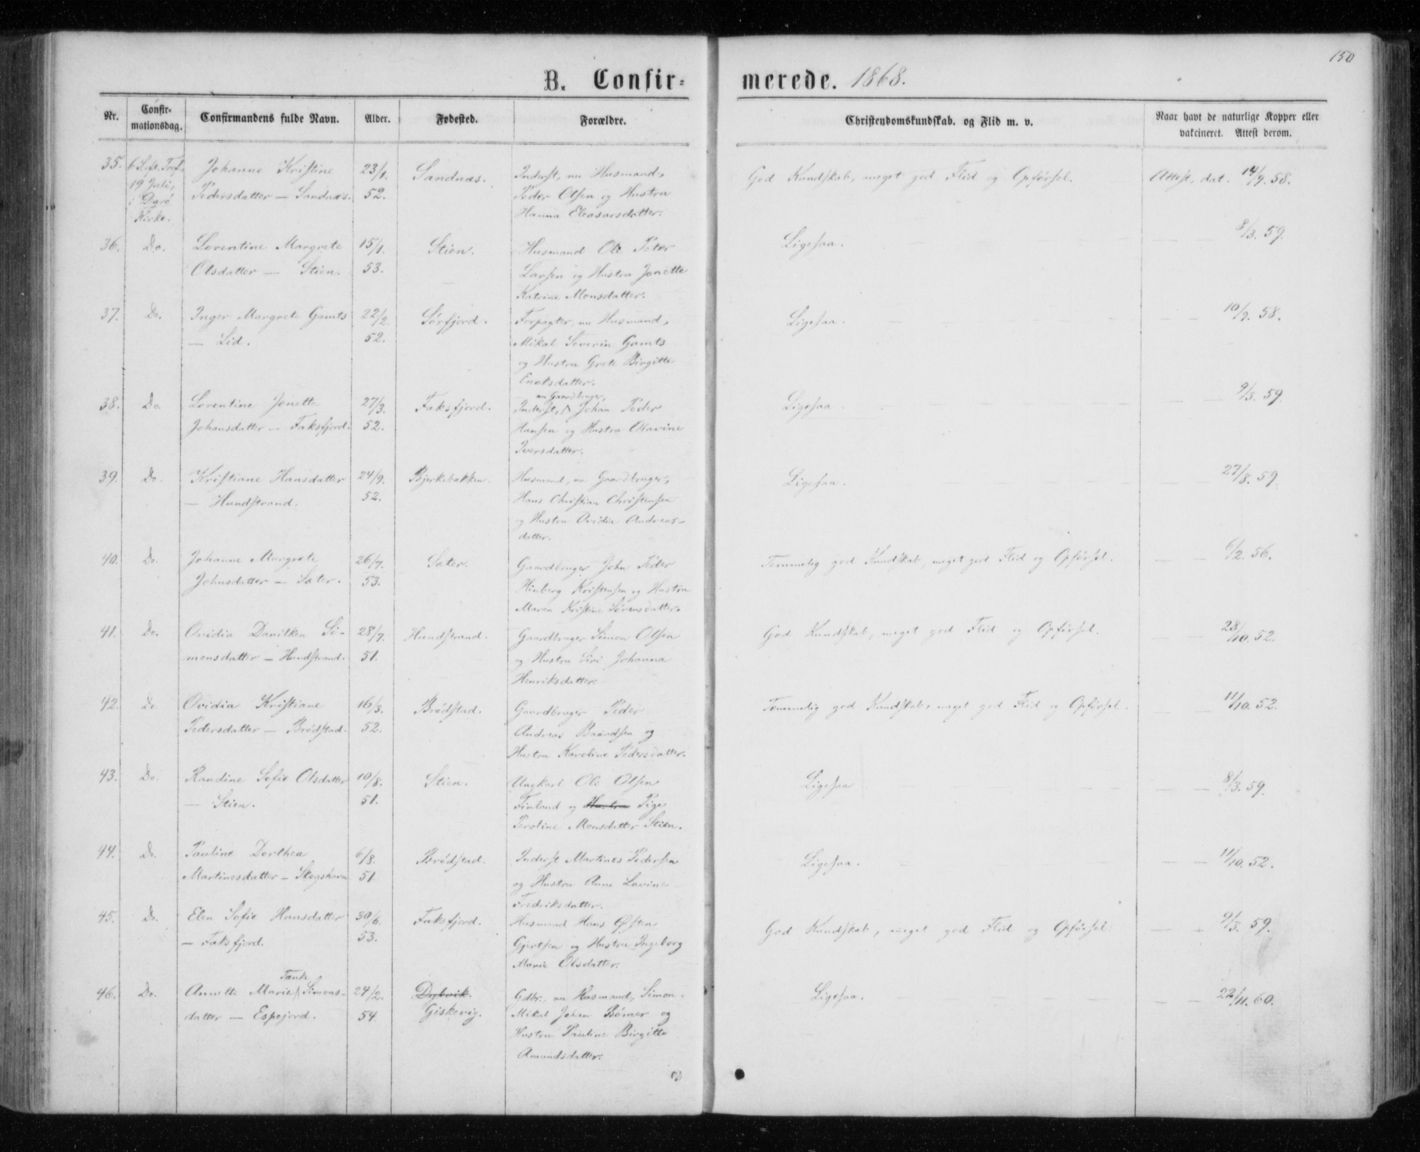 150
B. Confir-
merede. 1868.
Nr.
Confir-
mationsdag.
Confirmandens fulde Navn.
Alder.
Fødested.
Forældre.
Christendomskundskab, og Flid m. v.
Naar havt de naturlige Kopper eller
vakcineret. Attest derom.
35. Johanne Kristine 23/1. Sandnæs. Inderst, nu Husmand, God Kundskab, meget god Flid og Opførsel. Attest, dat. 14/9. 58.
19 Juli, Pedersdatter — Sandnæs. 52. Peder Olsen og Hustru
i Dyrø Hanna Eleasarsdatter.
Kirke.
36. Do. Lorentine Margrete 15/1. Stien. Husmand Ole Peter Ligesaa. 8/3. 59.
Olsdatter — Stien. 53. Larsen og Hustru Jonette
Katrine Monsdatter.
37. Do. Inger Margrete Gamts 22/2. Sørfjord. Forpagter, nu Husmand, Ligesaa. 10/9. 58.
— Lid. 52. Mikal Severin Gamts
og Hustru Grete Birgitte
Enoksdatter.
38. Do. Lorentine Jonette 27/3. Faksfjord. Inderst, nu Gaardbruger, Johan Peder Ligesaa. 9/3. 59.
Johansdatter — Faksfjord. 52. Hansen og Hustru Olavine
Iversdatter.
39. Do. Kristiane Hansdatter 24/9. Bjerkebakken. Husmand, nu Gaardbruger, Ligesaa. 22/8. 59.
— Hundstrand. 52. Hans Christian Christensen
og Hustru Ovidia Andreas-
datter.
40. Do. Johanne Margrete 26/7. Sæter. Gaardbruger John Peder Temmelig god Kundskab, meget god Flid og Opførsel. 6/2. 56.
Johnsdatter — Sæter. 53. Kristensen og Hustru
Maren Kristine Sørensdatter.
41. Do. Ovidia Danilken Si- 28/7. Hundstrand. Gaardbruger Simon Olsen God Kundskab, meget god Flid og Opførsel. 28/10. 52.
monsdatter — Hundstrand. 51. og Hustru Siri Johanna
Henriksdatter.
42. Do. Ovidia Kristiane 16/3. Brødstad. Gaardbruger Peder Temmelig god Kundskab, meget god Flid og Opførsel. 11/10. 52.
Pedersdatter — Brødstad. 52. Andreas og
Hustru Karoline Pedersdatter.
43. Do. Randine Sofie Olsdatter 10/8. Stien. Ungkarl Ole Olsen Ligesaa 8/3. 59.
— Stien. 51. Finland og Hustru Pige
Peroline Monsdatter Stien.
44. Do. Pauline Dorthea 6/8. Brødstad. Inderst Martines Pedersen Ligesaa. 11/10. 52.
Martinesdatter — 51. og Hustru Anne Lovine
Fredriksdatter.
45. Do. Elen Sofie Hansdatter 30/6. Faksfjord. Husmand Hans God Kundskab, meget god Flid og Opførsel 9/3. 59.
— Faksfjord. 53. Gjertsen og Hustru Ingeborg
Marie Olsdatter.
46. Do. Annette Marie Tank Simons- 24/2. Dybvik. Gdbr., nu Husmand, Simon Ligesaa. 22/11. 60.
datter — Espejord. 54. Giskevig. Mikal Johan Rømer og
Hustru Pauline Birgitte
Amundsdatter.